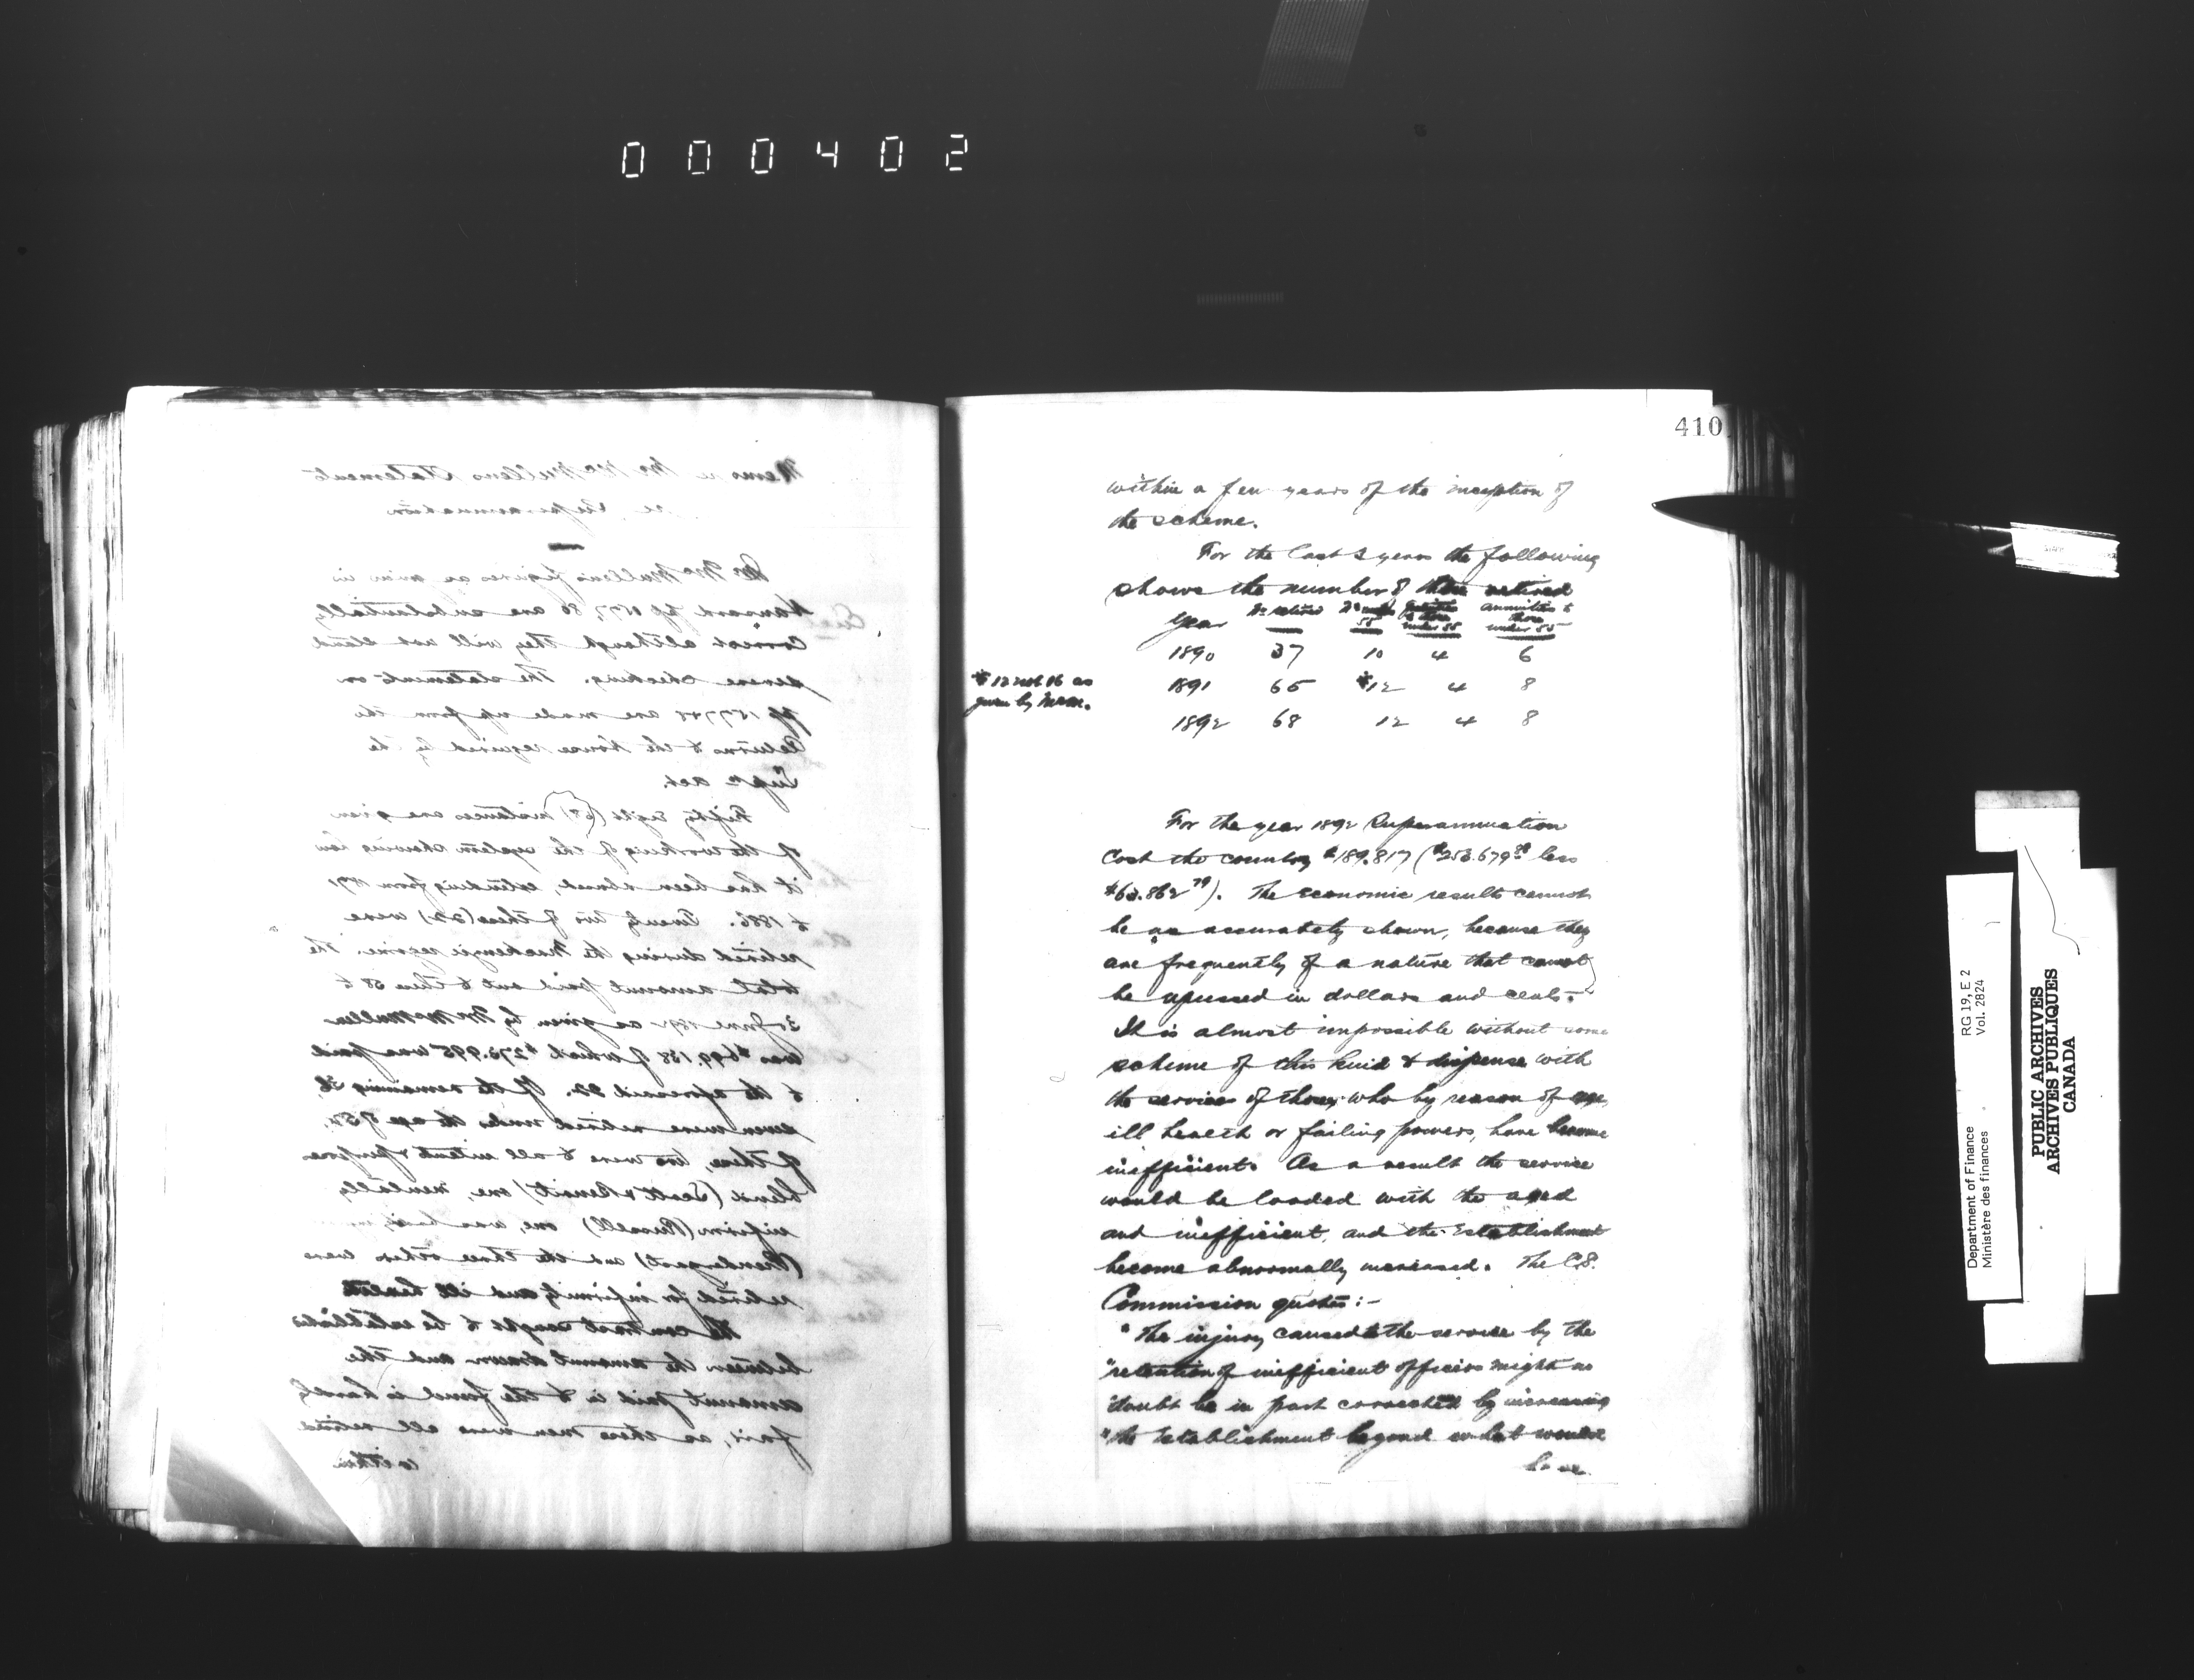 000402
Memo re Mr McMullens Statement
re Superannuation
Mr McMullen's figures as given in
Hansard pp 1577, 80 are substantially
correct although they will not stand
severe checking. The statements on
are made up from the
Returns to the House required by the
Supn act.
Fifty eight (58) instances are given
of the working of the system showing how
it has been abused, extending from 1871
to 1886. Twenty two of these (22) were
retired during the Mackenzie regime. The
total amount paid out to these 58 to
30 June 1892 as given by Mr McMullen
was $699.138 of which $273.995 was paid
to the aforesaid 22. Of the remaining 36,
seven were retired under the age of 52,
of these, two were to all intents & purposes
blind (Scott & Benoit) one, mentally
infirm (Russell) one, was
(Prendergast) and the three others were
retired for infirmity and ill health
The contrast sought to be established
between the amount drawn and the
amount paid in to the fund is hardly
fair, as these men were all retired
within
410
within a few years of the inception of
the scheme.
For the last 3 years the following
shows the number of those retired
Year No retired No under 55 Gratuities to those under 55 Annuities to those under 55
1890 37 10 4 6
* 12 not 16 as
given by McM.
1891 65 *12 4 8
1892 68 12 4 8
For the year 1892 Superannuation
cost the country $189.817 ($253.679 less
$63.862 79). The economic results cannot
be as accurately shown, because they
are frequently of a nature that cannot
be expressed in dollars and cents.
It is almost impossible without some
scheme of this kind to dispense with
the services of those, who by reason of age,
ill health or failing powers, have become
inefficient. As a result the service
would be loaded with the aged
and inefficient, and the Establishment
become abnormally increased. The C.S.
Commission quotes:-
"The injury caused to the service by the
"retention of inefficient officers might no
"doubt be in part corrected by increasing
"the Establishment beyond what would
have
Department of Finance RG 19, E 2
Ministère des finances Vol. 2824
PUBLIC ARCHIVES
ARCHIVES PUBLIQUES
CANADA